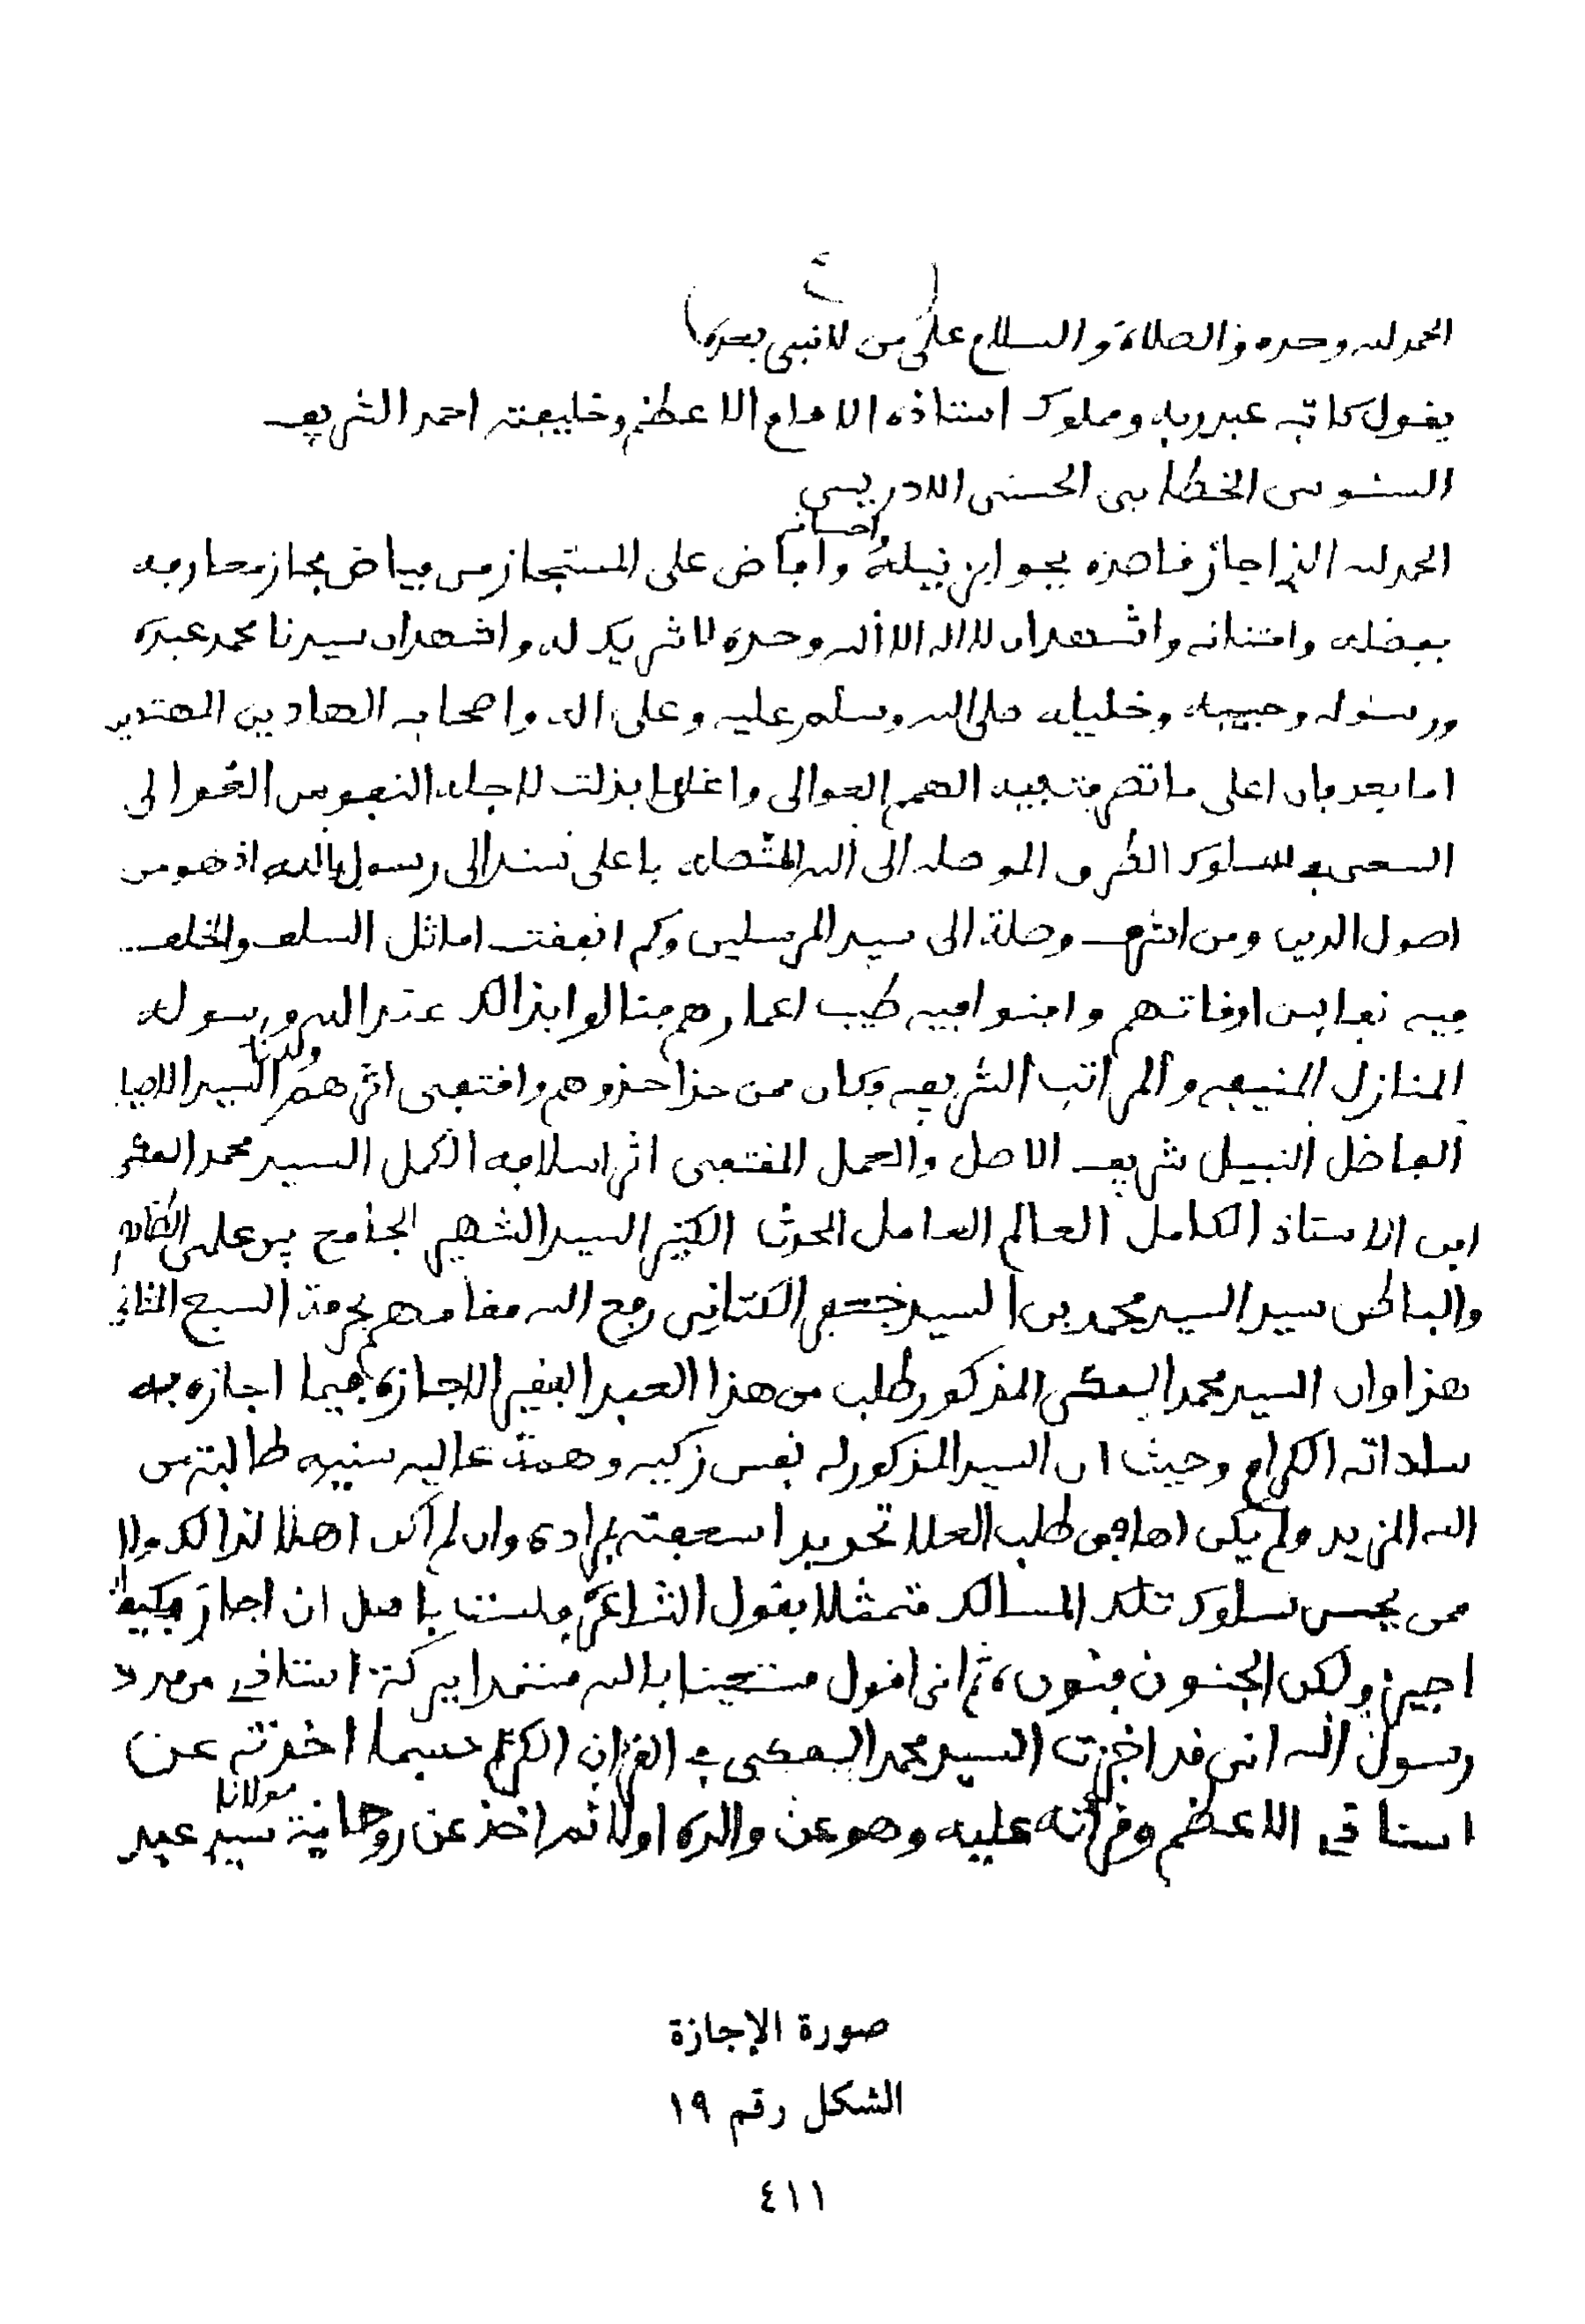 الحمد لله وحده والصلاة والسلام على من لا نبي بعده
يقول كاتبه عبد ربه ومملوك استاذه الامام الاعظم وخليفته احمد الشريف
السنوسي الخطابي الحسني الادريسي
الحمد لله الذي اجاز قاصده بجوايز نيله واحسانه وافاض على المستجاز من فياض مجاز معارفه
بفضله وامتنانه واشهد ان لا اله الا الله وحده لا شريك له واشهد ان سيدنا محمد عبده
ورسوله وحبيبه وخليله صلى الله وسلم عليه وعلى اله واصحابه الهادين المهتدين
اما بعد فان اعلى ما تصرفت فيه الهمم العوالي واغلى ما بذلت لاجله النفوس الغوالي
السعي في سلوك الطرق الموصله الى الله المتصله باعلى سند الى رسول الله اذ هو من
اصول الدين ومن اشرف وصلة الى سيد المرسلين وكم انفقت اماثل السلف والخلف
فيه نفايس اوقاتهم وافنوا فيه طيب اعمارهم فنالوا بذالك عند الله ورسوله
المنازل المنيفه والمراتب الشريفه وكان ممن حذا حذوهم واقتفى اثرهم ولدنا السيد
الفاضل النبيل شريف الاصل والعمل المقتفى اثر اسلافه الكمل السيد محمد
ابن الاستاذ الكامل العالم العامل المحدث الكبير السيد الشهير الجامع بين علمي الظاهر
والباطن سيد السيد محمد بن السيد جعفر الكتاني رفع الله مقامهم بحرمة السبع المثاني
هذا وان السيد محمد المذكور طلب من هذا العبد الفقير الاجازة فيما اجازه به
ساداته الكرام وحيث ان السيد المذكور له نفس زكيه وهمة عاليه سنيه طالبة من
الله المزيد ولم يكن في طلب العلا اسعفته بمراده وان لم اكن اهلا لذالك ولا
ممن يحسن سلوك تلك المسالك متمثلا بقول الشاعر فلست باهل ان اجاز فكيف ان
اجيز ولكن الجنون فنون، ثم اني اقول مستعينا بالله مستمدا بركة استاذي من مدد
رسول الله اني قد اجزت السيد محمد في القران الكريم حسبما اخذته عن
استاذي الاعظم وقرأته عليه وهو عن والده اولا ثم اخذ عن روحانية مولانا سيد عبد
صورة الإجازة
الشكل رقم ١٩
٤١١